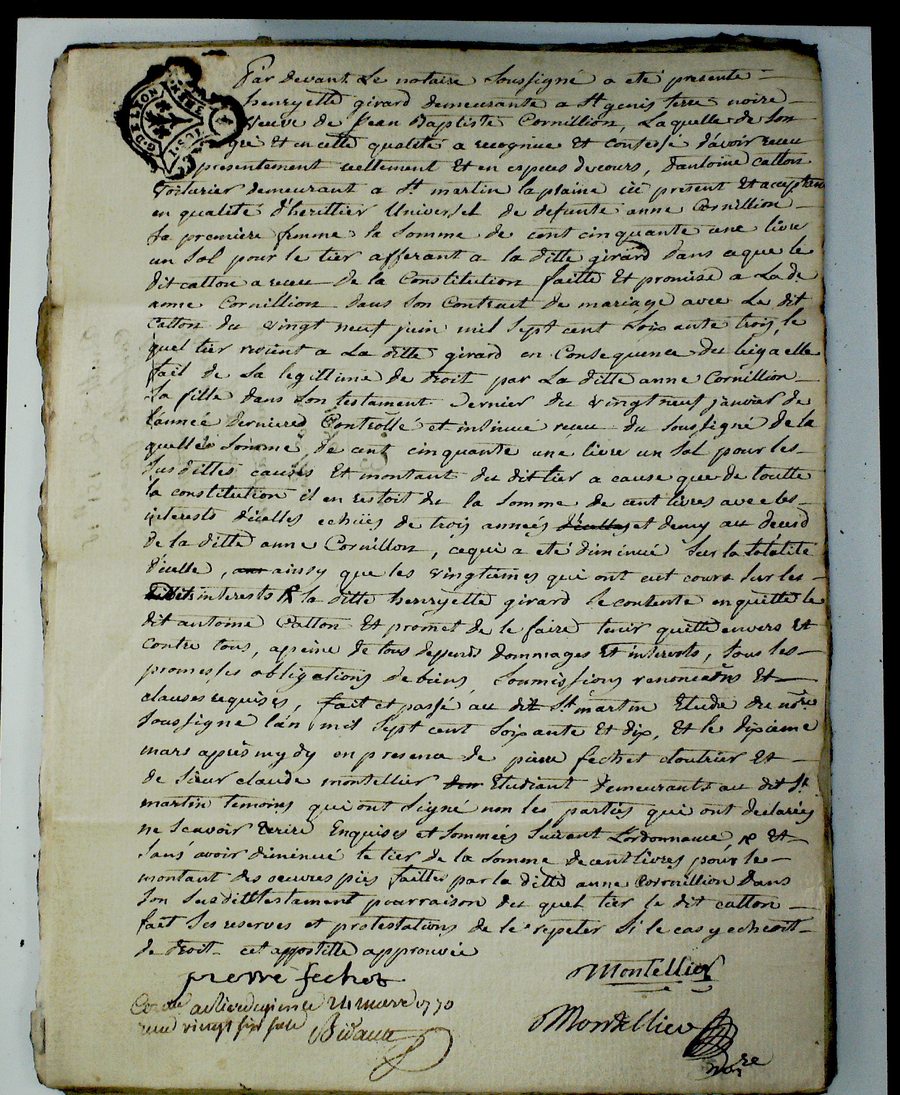 G. DE LYON
Par devant Le notaire soussigné a été presente
henryette girard demeurante a St genis terre noire
veuve de Jean Baptiste Cornillion, Laquelle de son
gré Et en cette qualité a recognue Et confessé d'avoir receu
presentement reellement Et en espèces de cours, d'antoine catton
voiturier demeurant a St martin la plaine ici présent Et acceptant
en qualité d'herittier Universel de defunte anne Cornillion
sa premiere femme la somme de cent cinquante une livre
un sol pour le tier afferant a la ditte girard dans ce que le
dit catton a receu de la Constitution faitte Et promise a La de
anne Cornillion dans son Contract de mariage avec Le dit
Catton du vingt neuf juin mil sept cent soixante trois, le
quel tier revient a La ditte girard en Consequence du legs a elle
fait de sa legittime de droit par La ditte anne Cornillion
sa fille dans son testament dernier du vingt neuf janvier de
l'année derniere Controlle et insinué receu du soussigné de la
quelle somme de cent cinquante une livre un sol pour les
susdittes causes Et montant du dit tier a cause que de toutte
la constitution il en restoit du la somme de cent livres avec les
interests d'icelles echüs de trois années d'icelles et demy au deced
de la ditte anne Cornillon, ce qui a eté diminué sur la totalité
d'icelle, ainsy que les vingtiemes qui ont eut cours sur les
dits interests la ditte henryette girard se contente en quitte le
dit antoine Catton Et promet de le faire tenir quitte envers Et
contre tous, a peine de tous depends dommages Et interests, sous les
promesses obligations de biens, soumissions renonciations Et
clauses requises, fait et passé au dit St martin Etude du nore
soussigné l'an mil sept cent soixante et dix, Et le dixieme
mars après mydy en presence de pierre fechet cloutrier Et
de sieur claude montellier Etudiant demeurants au dit St
martin temoins qui ont signé non les parties qui ont declarées
ne scavoir Ecrire Enquises et sommées suivant L'ordonnance, Et
sans avoir diminué le tier de la somme de cent livres pour le
montant des oeuvres pies faittes par la ditte anne Cornillion dans
son susdit testament pour raison du quel tier le dit catton
fait ses reserves et protestations de le repeter si le cas y echeoit
de droit cet appostille approuvée
pierre fechet
Montellier
24 mars 1770
Bidault
Montellier
nore